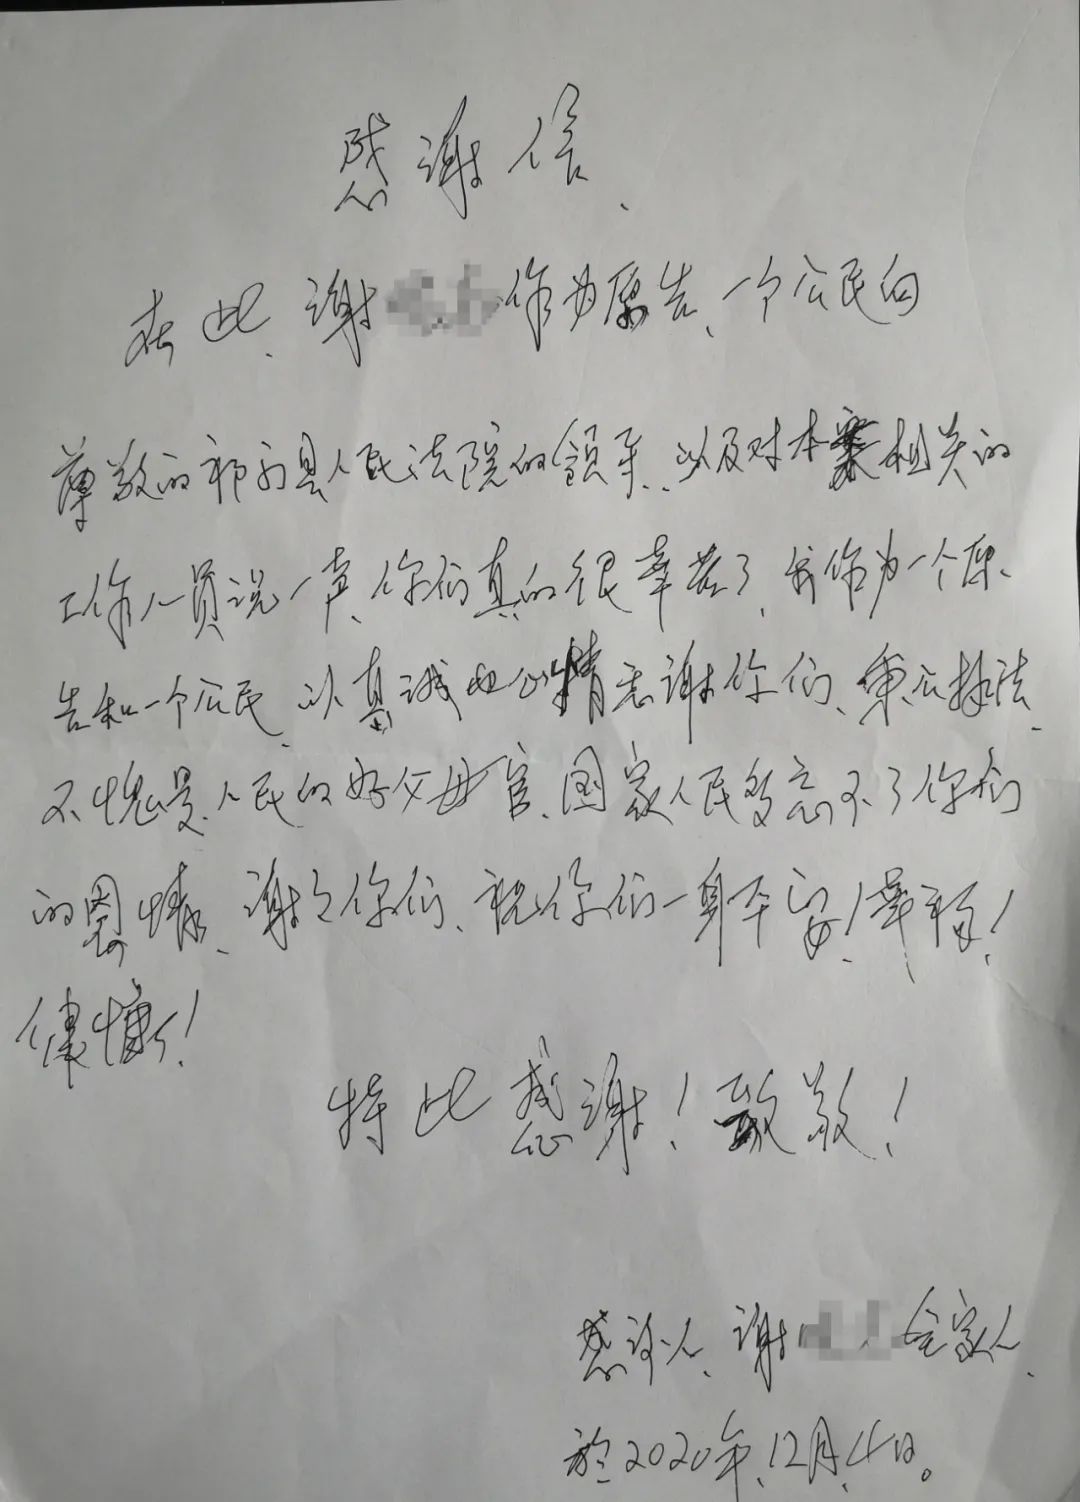 感谢信、
在此、谢 作为原告、一个公民向
尊敬的祁门县人民法院的领导、以及对本案相关的
工作人员说一声、你们真的很幸苦了、我作为一个原
告和一个公民、以真诚的心情感谢你们、秉公执法、
不愧是、人民的好父母官、国家人民多忘不了你们
的恩情、谢谢你们、祝你们一身平安！幸福！
健慷！
特此感谢！致敬！
感谢人、谢 全家人、
於2020年、12月、4日。